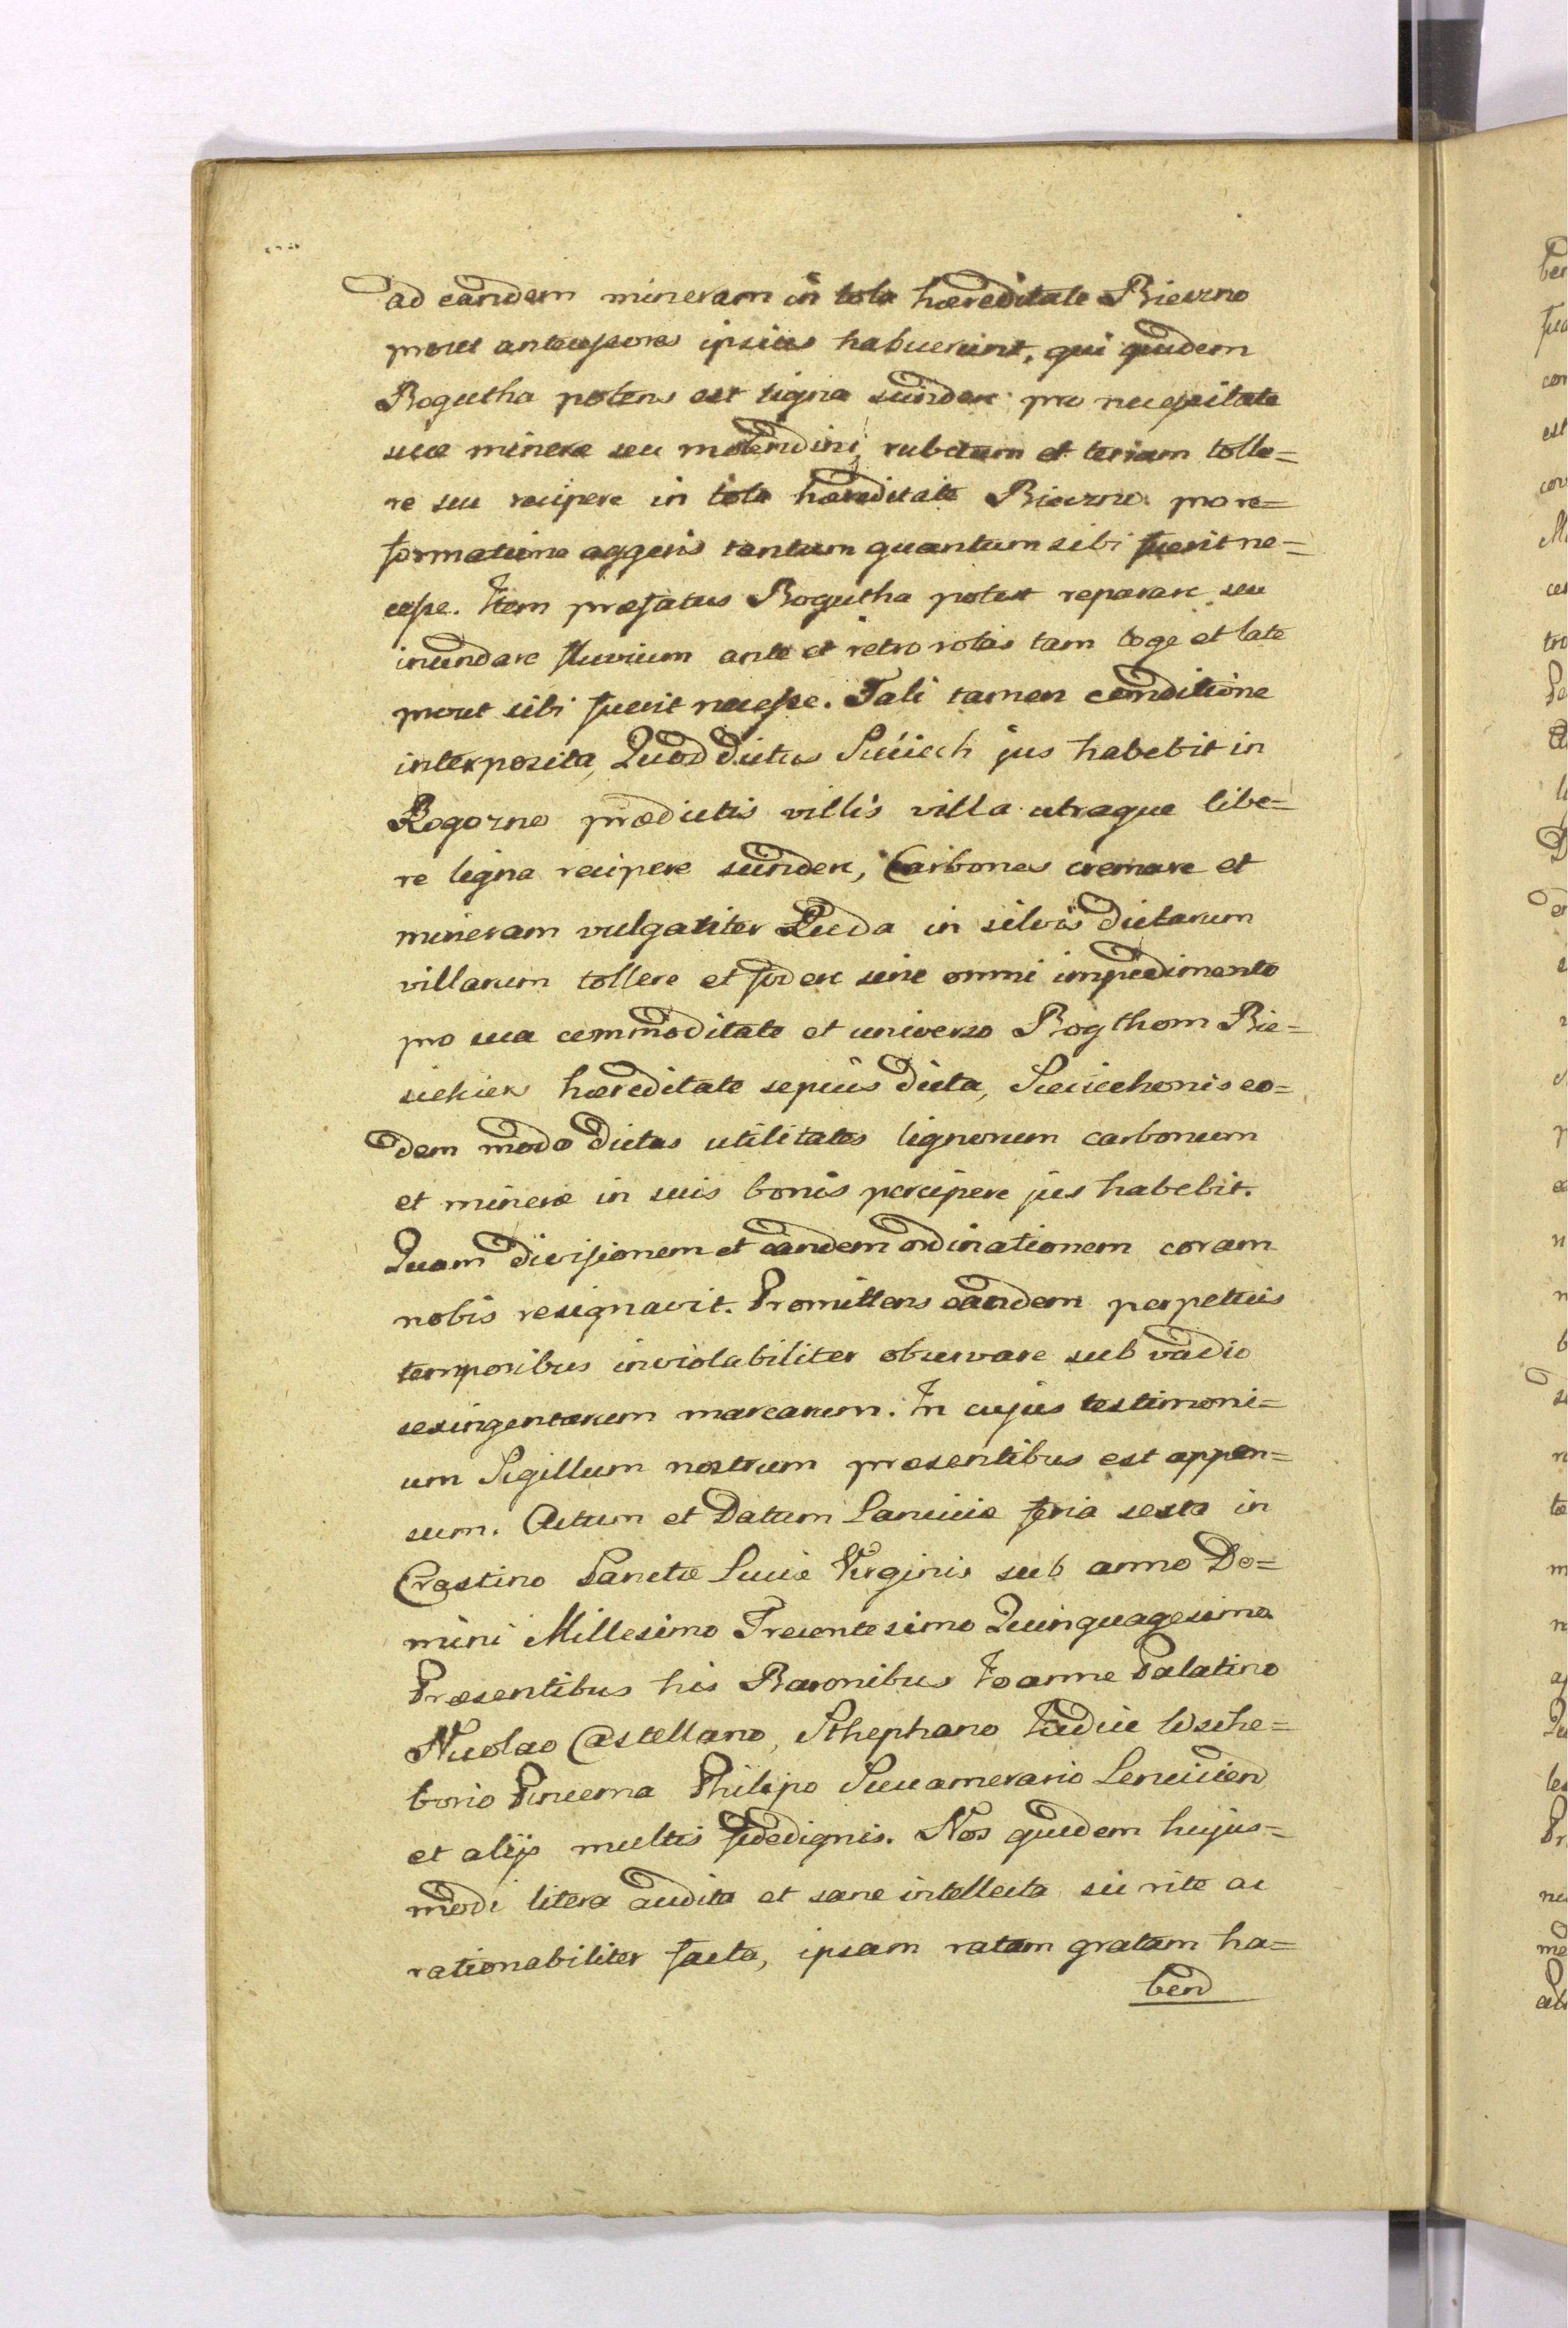 ad eandem mineram in tota hæreditate Bieozno
prout antecessores ipsius habuerunt, qui quidem
Bogutha potens est ligna scindere pro necessitate
suæ mineræ seu molendini, rubetum et terram tolle=
re seu recipere in tota hæreditate Bieozno pro re=
formatione aggeris tantum quantum sibi fuerit ne=
cesse. Item præfatus Bogutha potest reparare seu
inundare fluvium ante et retro rotas tam loge et late
prout sibi fuerit necesse. Tali tamen conditione
interposita, Quod dictus Sciiech jus habebit in
Rogozno prædictis villis villa utraque libe=
re ligna recipere scindere, Carbones cremare et
mineram vulgariter Ruda in silvis dictarum
villarum tollere et fodere sine omni impedimento
pro sua commoditate et universo Bogthom Bie=
siekier hæreditate sepius dicta, Sciiechonis eo=
dem modo dictas utilitates lignorum carbonum
et mineræ in suis bonis percipere jus habebit.
Quam divisionem et eandem ordinationem coram
nobis resignavit. Promittens eandem perpetuis
temporibus inviolabiliter observare sub vadio
sexingentarum marcarum. In cujus testimoni=
um Sigillum nostrum præsentibus est appen=
sum. Actum et Datum Lanciciæ feria sexta in
Crastino Sanctæ Luciæ Virginis sub anno Do=
mini Millesimo Trecentesimo Quinquagesimo
Præsentibus his Baronibus Joanne Palatino
Nicolao Castellano, Sthephano Judice Wscie=
borio Pincerna Philipo Succamerario Lenciicien
et alijs multis fidedignis. Nos quidem hujus=
modi litera audita et sane intellecta sic rite ac
rationabiliter facta, ipsam ratam gratam ha=
bend